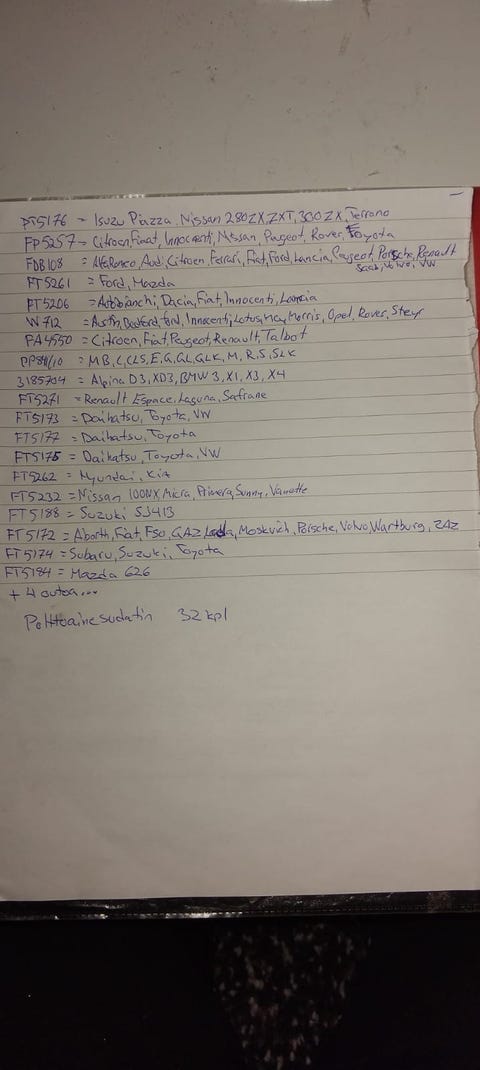 FT5176 = Isuzu Piazza, Nissan 280ZX, ZXT, 300ZX, Terrano
FP5257 = Citroen, Fiaat, Innocenti, Nissan, Peugeot, Rover, Toyota
FDB108 = Alfa Romeo, Audi, Citroen, Ferrari, Fiat, Ford, Lancia, Peugeot, Porsche, Renault
Saab, Volvo, VW
FT5261 = Ford, Mazda
FT5206 = Autobianchi, Dacia, Fiat, Innocenti, Lancia
W712 = Austin, Bedford, Ford, Innocenti, Lotus, Morris, Opel, Rover, Steyr
PA4550 = Citroen, Fiat, Peugeot, Renault, Talbot
= MB, C, CLS, E, G, GL, GLK, M, R, S, SLK
3185704 = Alpina D3, XD3, BMW 3, X1, X3, X4
FT5271 = Renault Espace, Laguna, Safrane
FT5173 = Daihatsu, Toyota, VW
FT5177 = Daihatsu, Toyota
FT5175 = Daihatsu, Toyota, VW
FT5262 = Hyundai, Kia
FT5232 = Nissan 100NX, Micra, Primera, Sunny, Vanette
FT5188 = Suzuki SJ413
FT5172 = Abarth, Fiat, FSO, GAZ, Lada, Moskvich, Porsche, Volvo, Wartburg, ZAZ
FT5174 = Subaru, Suzuki, Toyota
FT5184 = Mazda 626
+ 4 outoa...
Polttoainesuodatin 32 kpl